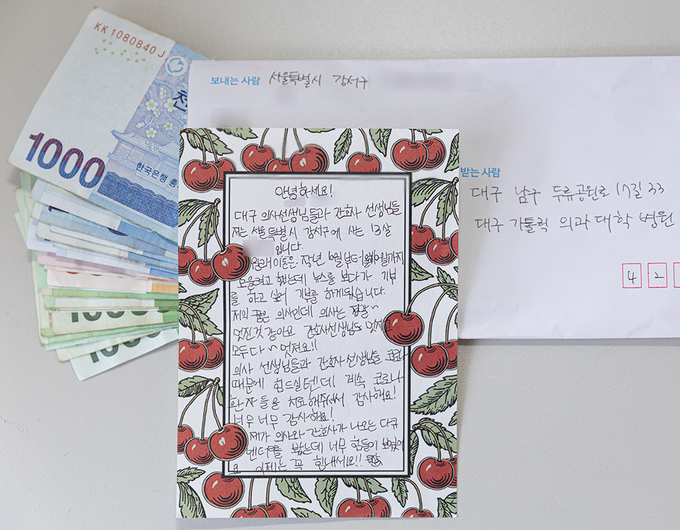 KK 1080840 J
1000
천
한국은행 총
10000
보내는 사람 서울특별시 강서구
받는 사람
대구 남구 두류공원로 17길 33
대구 가톨릭 의과대학병원
4 2
안녕하세요!
대구 의사선생님들과 간호사 선생님들
저는 서울특별시 강서구에 사는 13살
입니다.
원래 이 돈은 작년
모을려고 했는데 뉴스를 보다가 기부
를 하고 싶어 기부를 하게되었습니다.
저의 꿈은 의사인데 의사는 정말
멋진것 같아요 간호사선생님도 멋지고
모두다 멋져요!!
의사 선생님들과 간호사 선생님들 코로나
때문에 힘드실텐데 계속 코로나
환자들을 치료해주셔서 감사해요!
너무 너무 감사해요!
제가 의사와 간호사가 나오는 다큐
멘터리를 봤는데 너무 힘들어 보였어
요 이제는 꼭 힘내세요!!